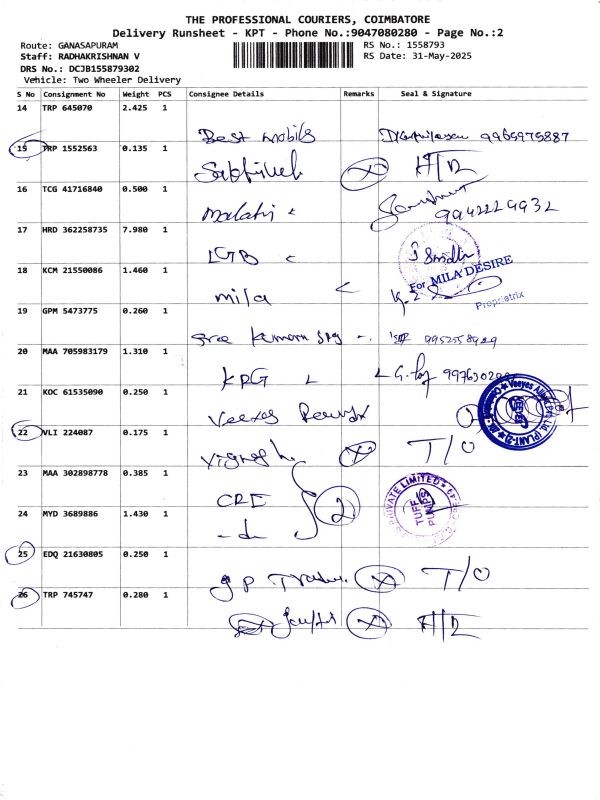 THE PROFESSIONAL COURIERS, COIMBATORE
Delivery Runsheet - KPT - Phone No.:9047080280 - Page No.:2
Route: GANASAPURAM
RS No.: 1558793
Staff: RADHAKRISHNAN V
RS Date: 31-May-2025
DRS No.: DCJB155879302
Vehicle: Two Wheeler Delivery
S No Consignment No Weight PCS Consignee Details Remarks Seal & Signature
14 TRP 645070 2.425 1
Best mobils 9965975887
15 TRP 1552563 0.135 1
16 TCG 41716840 0.500 1
Malathi 9942229932
17 HRD 362258735 7.980 1
IGB
18 KCM 21550086 1.460 1
For MILA DESIRE
mila
Proprietrix
19 GPM 5473775 0.260 1
Sree Kumaran 9952558929
20 MAA 705983179 1.310 1
KPG
21 KOC 61535090 0.250 1
Veeyes
22 VLI 224087 0.175 1
Vignesh T/O
23 MAA 302898778 0.385 1
CRI 2
PRIVATE LIMITED
TUFF PUMPS
24 MYD 3689886 1.430 1
-do
25 EDQ 21630805 0.250 1
G P Traders T/O
26 TRP 745747 0.280 1